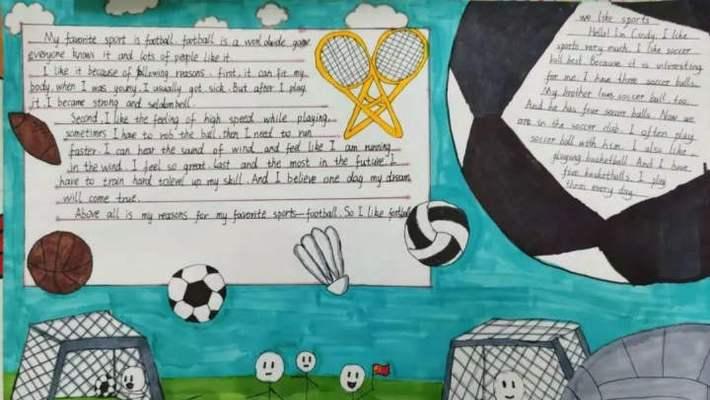 My favorite sport is football. football is a worldwide game
everyone knows it and lots of people like it.
I like it because of following reasons. first, it can fit my
body. when I was young, I usually got sick. But after I play
it. I became strong and seldom
Second, I like the feeling of high speed while playing.
sometimes I have to rob the ball. then I need to run
faster. I can hear the sound of wind and feel like I am running
in the wind. I feel so great. Last and the most in the future I
have to train hard to level up my skill. And I believe one day my dream
will come true.
Above all is my reasons for my favorite sports—football. So I like football
we like sports
Hello! I'm Cindy. I like
sports very much. I like soccer
ball best. Because it is interesting
for me. I have three soccer balls.
My brother loves soccer ball, too.
And he has four soccer balls. Now we
are in the soccer club. I often play
soccer ball with him. I also like
playing basketball. And I have
five basketballs. I play
them every day.